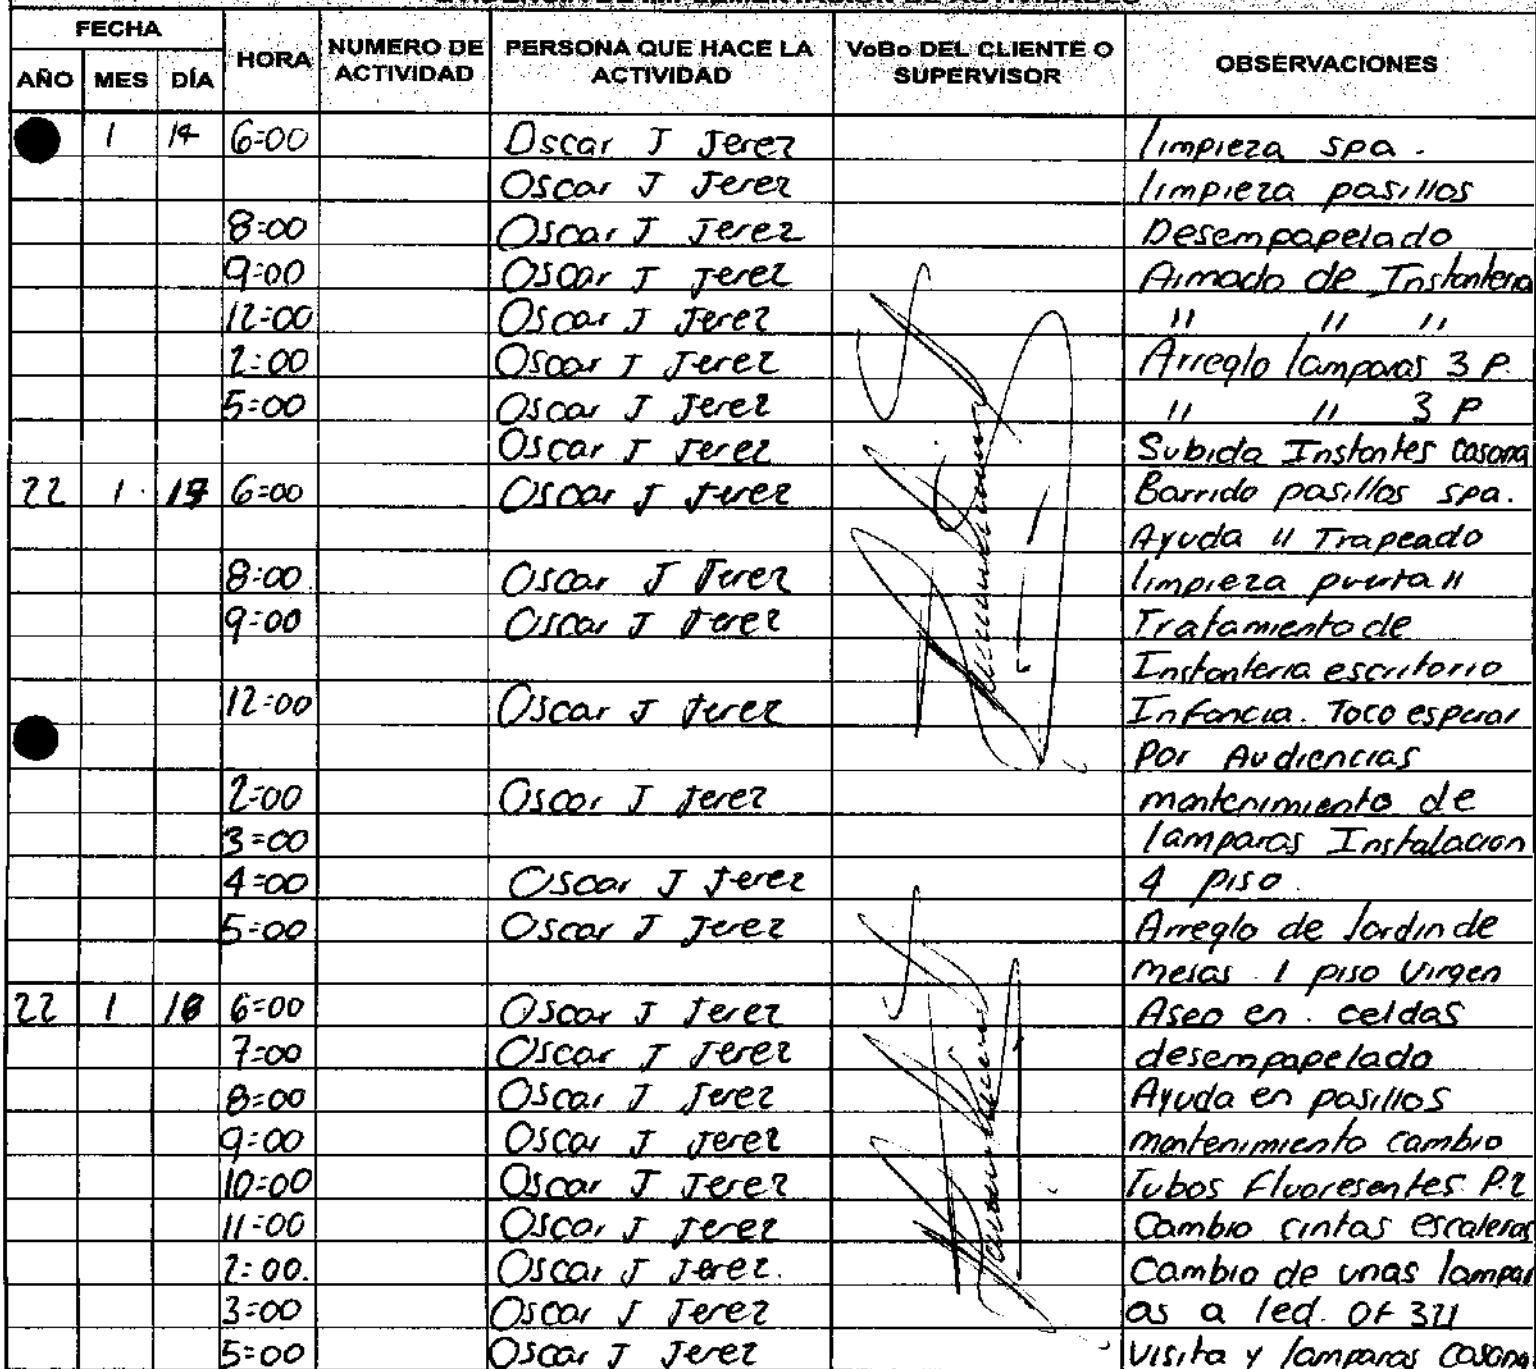 FECHA
HORA
NUMERO DE ACTIVIDAD
PERSONA QUE HACE LA ACTIVIDAD
VoBo DEL CLIENTE O SUPERVISOR
OBSERVACIONES
AÑO MES DÍA
1 14 6:00 Oscar J Jerez limpieza spa.
Oscar J Jerez limpieza pasillos
8:00 Oscar J Jerez Desempapelado
9:00 Oscar J Jerez Armado de Instanteria
12:00 Oscar J Jerez " " "
2:00 Oscar J Jerez Arreglo lamparas 3 P.
5:00 Oscar J Jerez " " 3 P
Oscar J Jerez Subida Instantes casona
22 1 6:00 Oscar J Jerez Barrido pasillos spa.
Ayuda " Trapeado
8:00 Oscar J Jerez limpieza puerta "
9:00 Oscar J Jerez Tratamiento de
Instanteria escritorio
12:00 Oscar J Jerez Infancia. Toco esperar
Por Audiencias
2:00 Oscar J Jerez mantenimiento de
3:00 lamparas Instalacion
4:00 Oscar J Jerez 4 piso.
5:00 Oscar J Jerez Arreglo de Jardin de
1 piso Virgen
22 1 18 6:00 Oscar J Jerez Aseo en celdas
7:00 Oscar J Jerez desempapelado
8:00 Oscar J Jerez Ayuda en pasillos
9:00 Oscar J Jerez mantenimiento cambio
10:00 Oscar J Jerez Tubos Fluoresentes P.2
11:00 Oscar J Jerez Cambio cintas escaleras
2:00. Oscar J Jerez. Cambio de unas lampar
3:00 Oscar J Jerez as a led. Of
5:00 Oscar J Jerez visita y lamparas casona